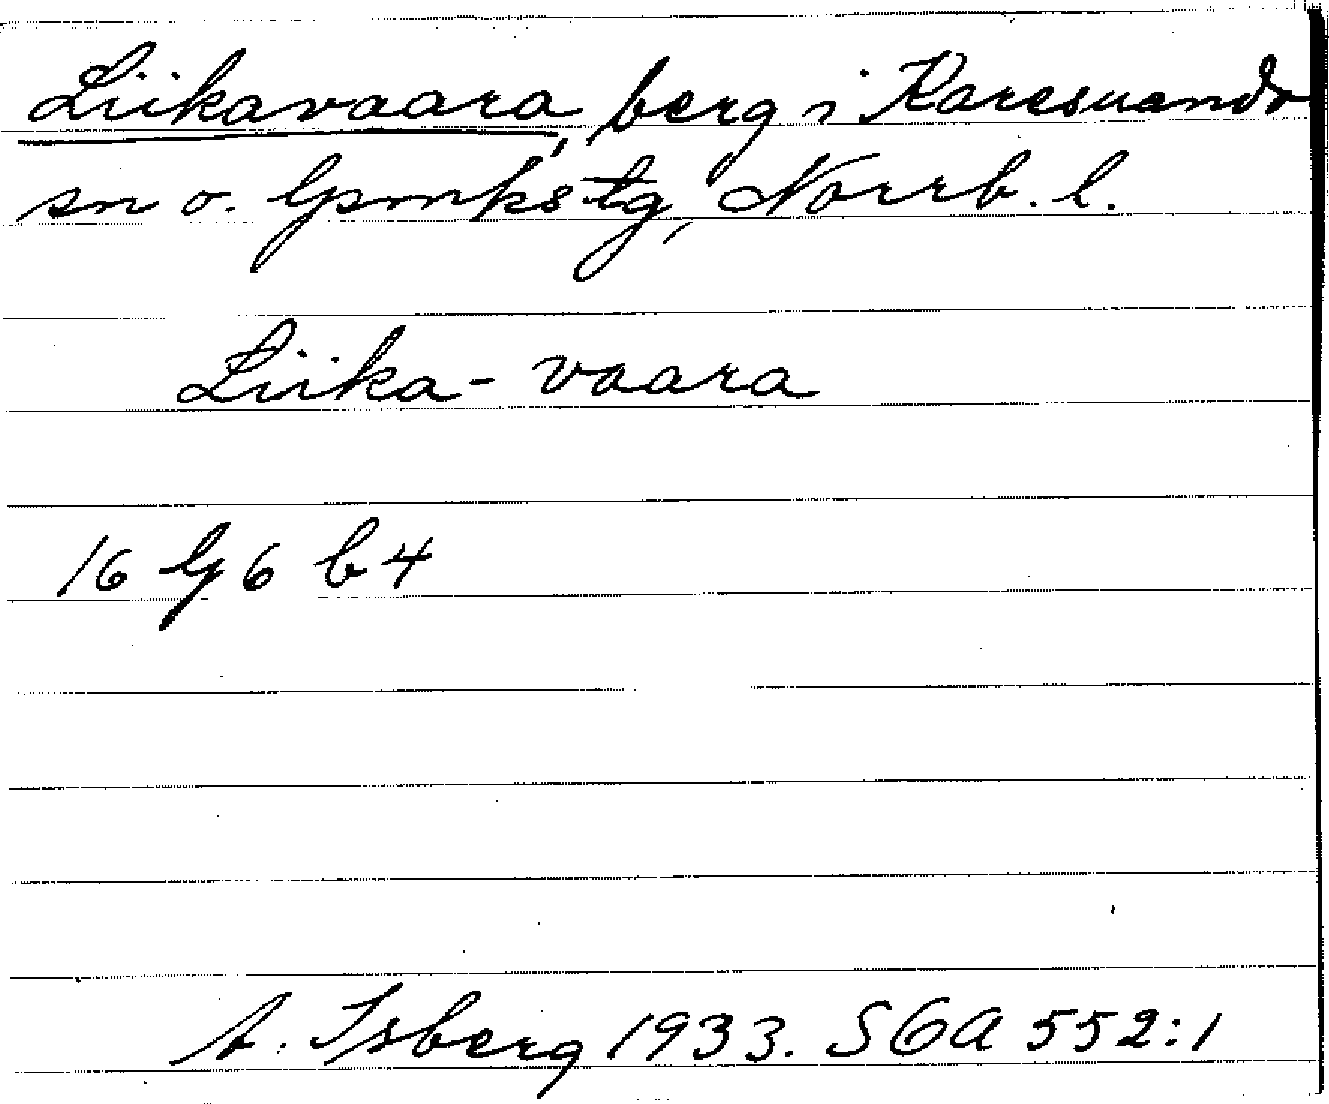 Liikavaara, berg i Karesuando
sn o. lpmkstg, Norrb. l.
Liika-vaara
16 G 6 b 4
A. Isberg 1933. SOA 552:1